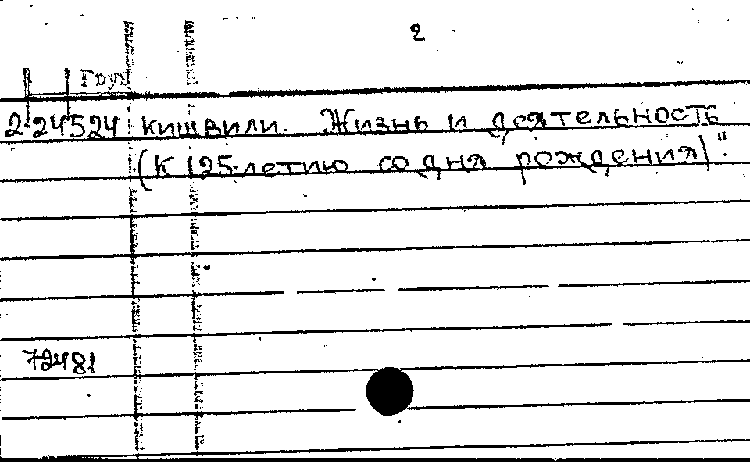 2
Груз
2 24524 кишвили. Жизнь и деятельность
(к 125-летию со дня рождения)".
72481